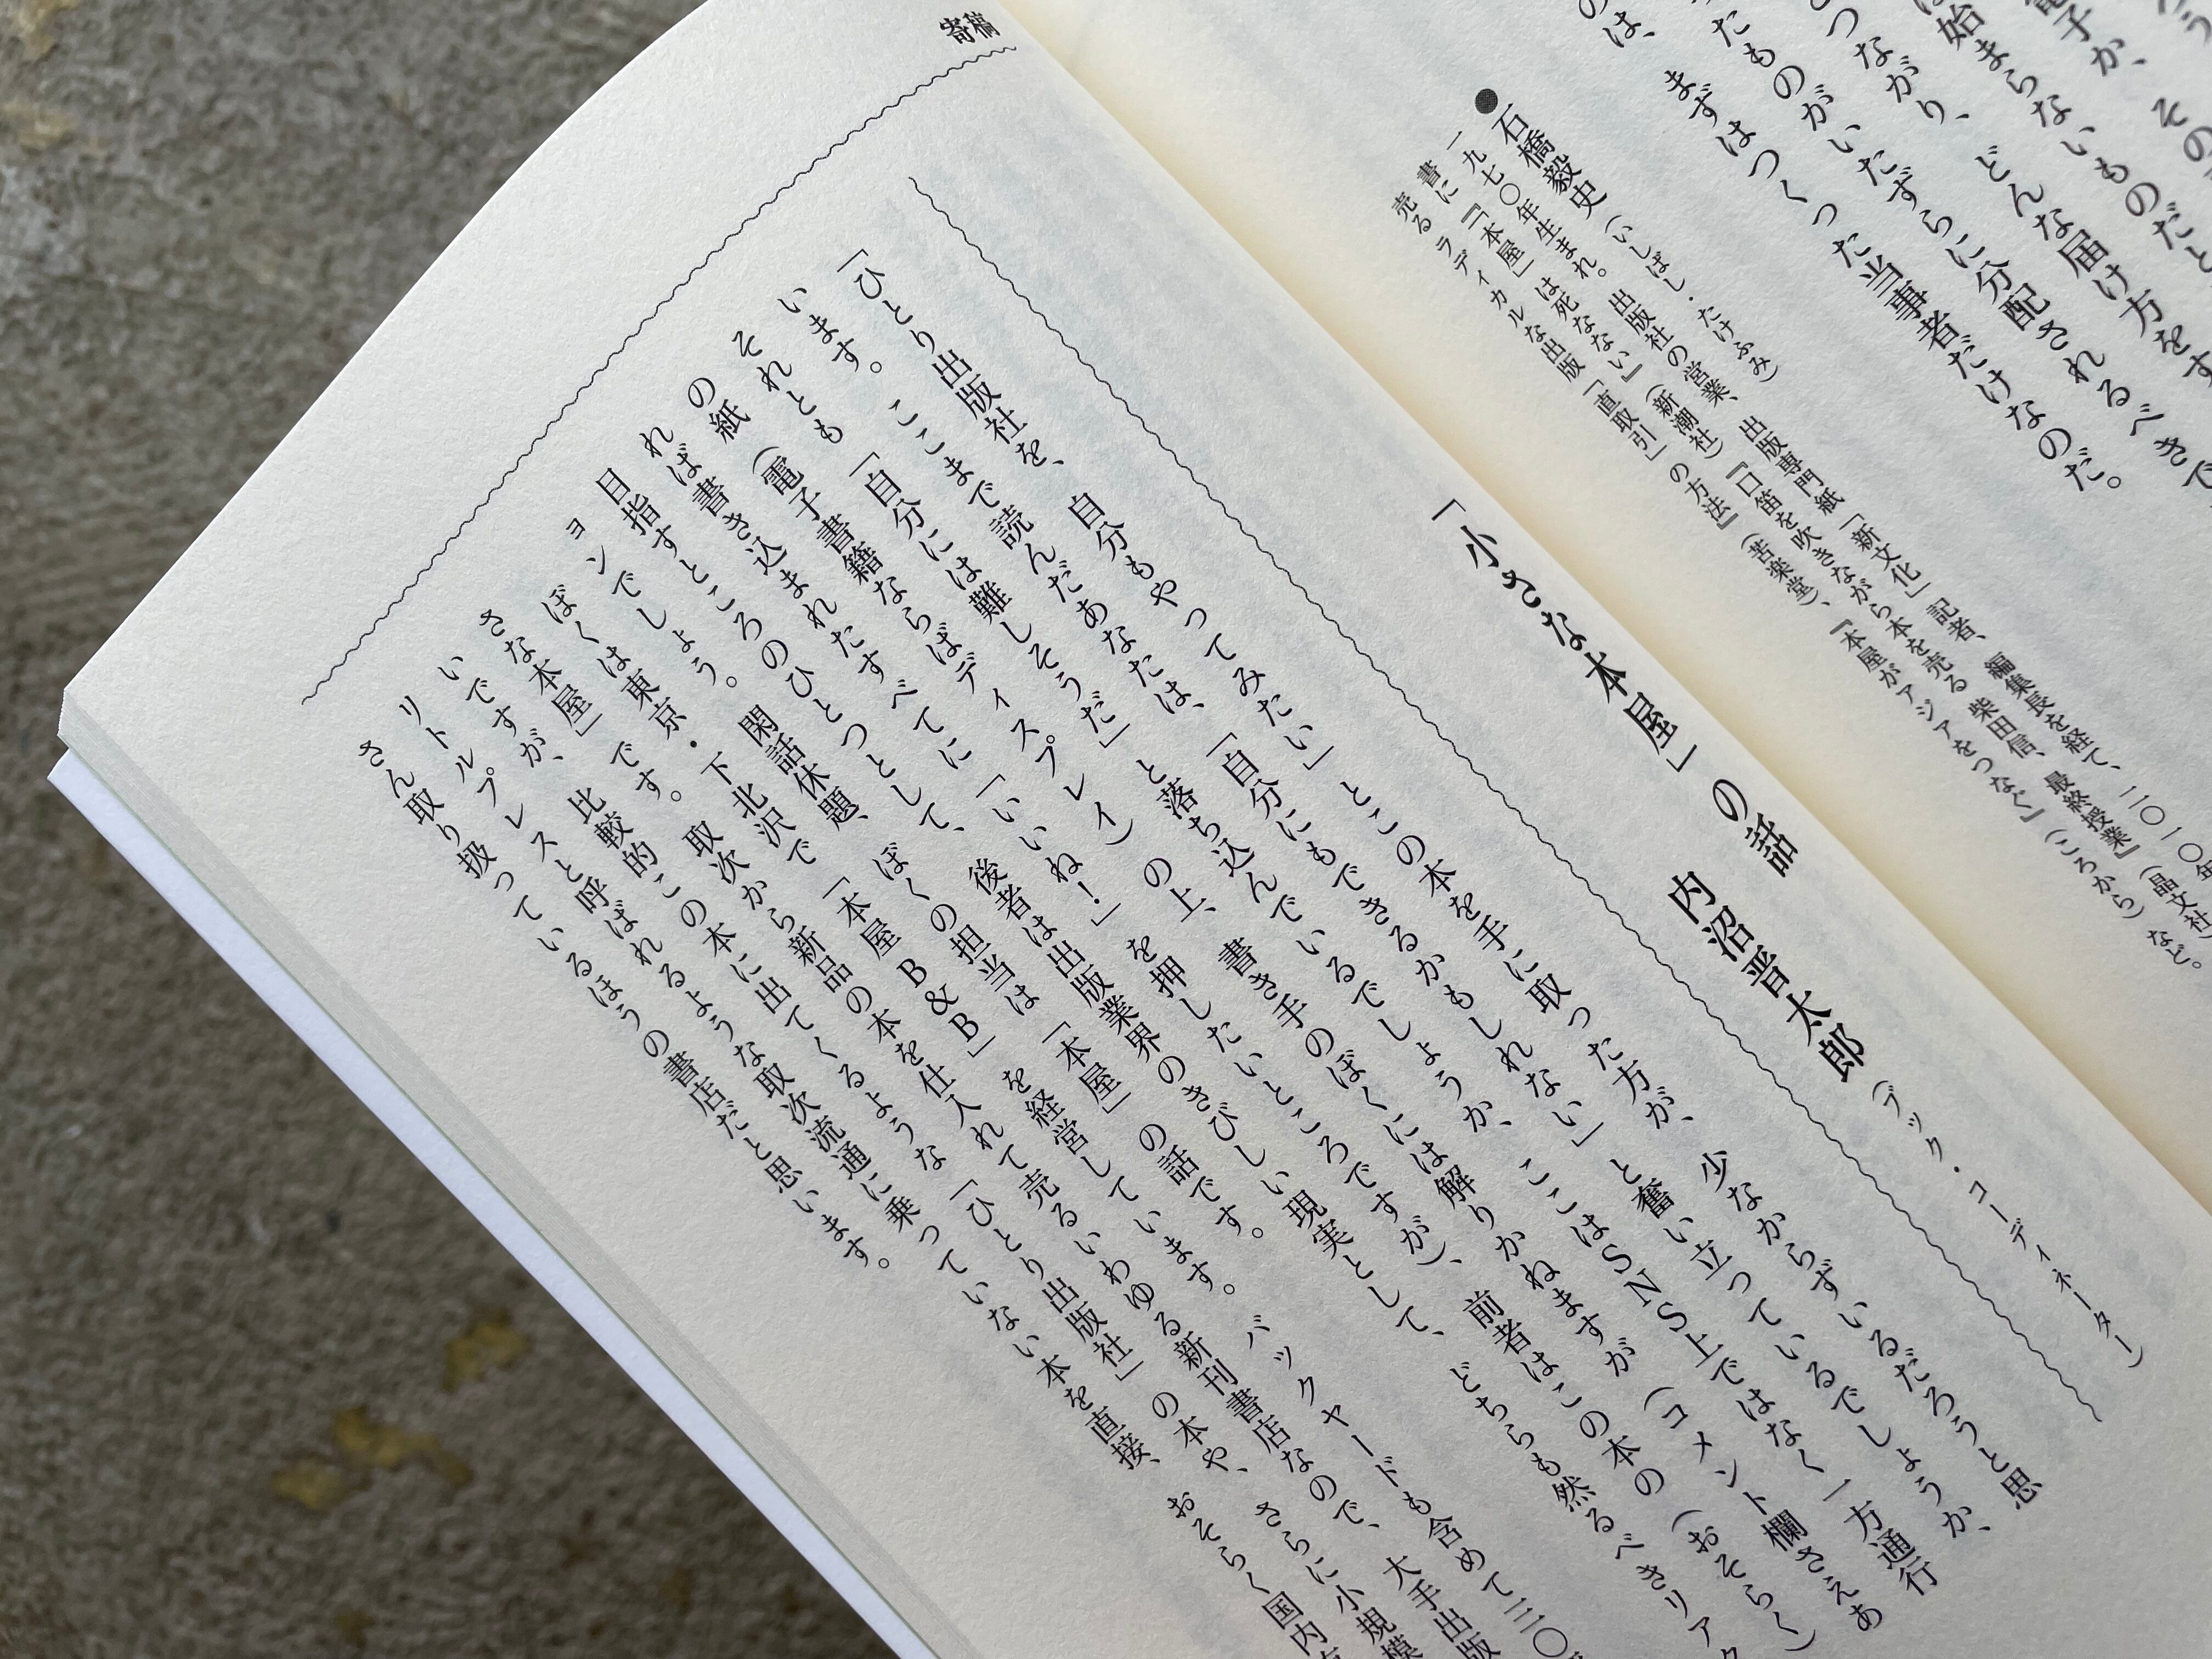 電子か、その
始まらないものだと
つながり、どんな届け方をす
たものがいたずらに分配されるべきで
のは、まずはつくった当事者だけなのだ。
●石橋毅史（いしばし・たけふみ）
一九七〇年生まれ。出版社の営業、出版専門紙「新文化」記者、編集長を経て、二〇一〇年
書に『「本屋」は死なない』（新潮社）『口笛を吹きながら本を売る 柴田信、最終授業』（晶文社）
売る ラディカルな出版「直取引」の方法』（苦楽堂）、『本屋がアジアをつなぐ』（ころから）など。
寄稿
「小さな本屋」の話
内沼晋太郎（ブック・コーディネーター）
「ひとり出版社を、自分もやってみたい」とこの本を手に取った方が、少なからずいるだろうと思
います。ここまで読んだあなたは、「自分にもできるかもしれない」と奮い立っているでしょうか、
それとも「自分には難しそうだ」と落ち込んでいるでしょうか、ここはSNS上ではなく一方通行
の紙（電子書籍ならばディスプレイ）の上、書き手のぼくには解りかねますが（コメント欄さえあ
れば書き込まれたすべてに「いいね！」を押したいところですが）、前者はこの本の（おそらく）
目指すところのひとつとして、後者は出版業界のきびしい現実として、どちらも然るべきリアク
ョンでしょう。閑話休題、ぼくの担当は「本屋」の話です。
ぼくは東京・下北沢で「本屋B&B」を経営しています。バックヤードも含めて三〇
さな本屋」です。取次から新品の本を仕入れて売るいわゆる新刊書店なので、大手出版
いですが、比較的この本に出てくるような「ひとり出版社」の本や、さらに小規模
リトルプレスと呼ばれるような取次流通に乗っていない本を直接、おそらく国内
さん取り扱っているほうの書店だと思います。